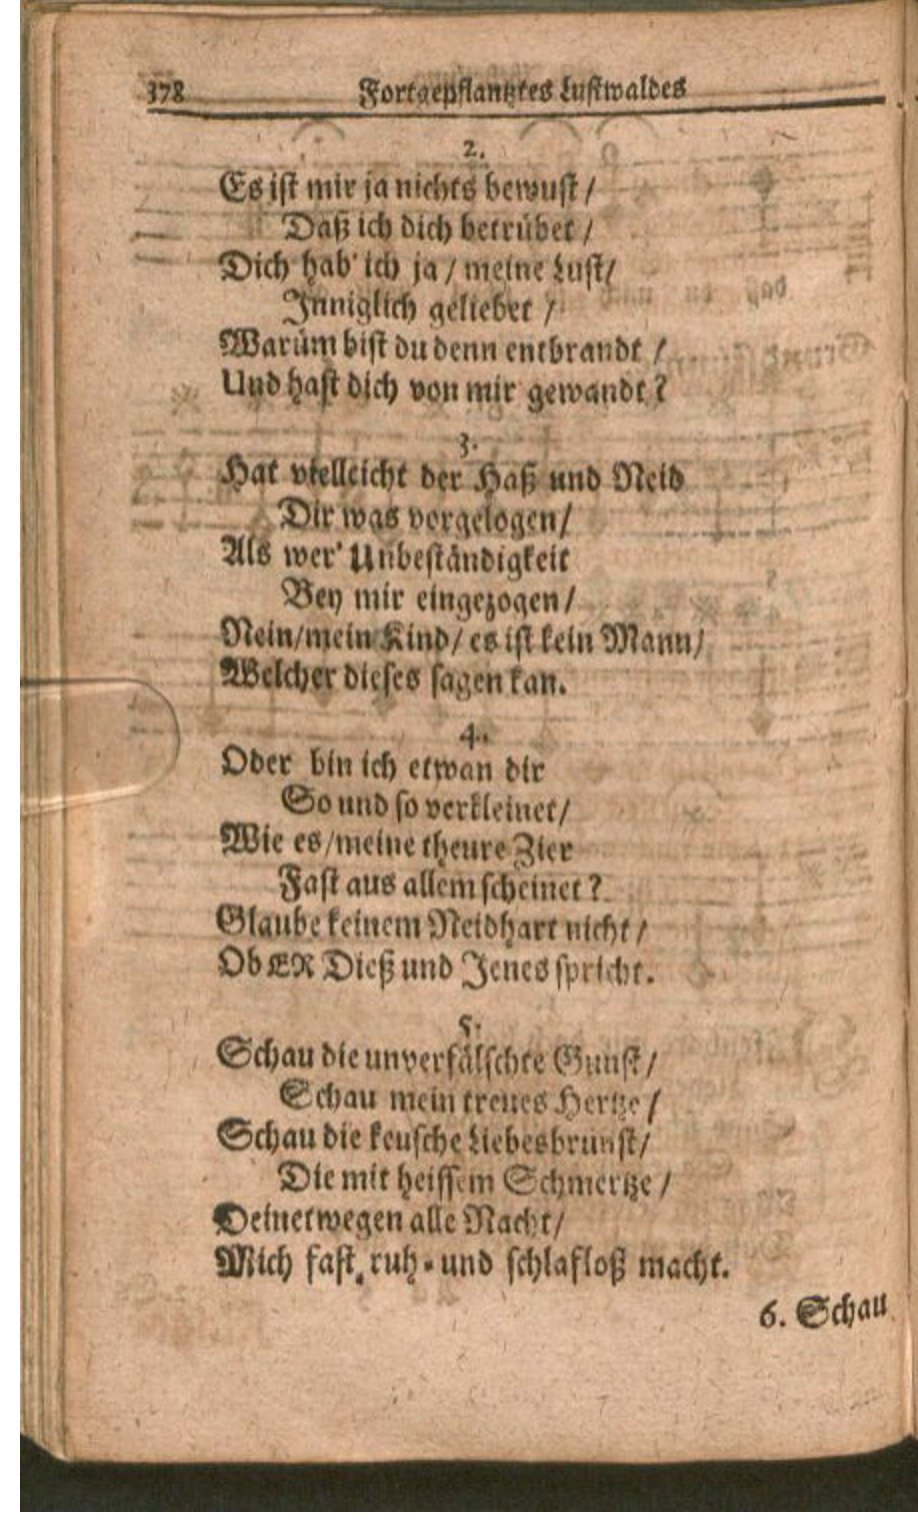 378 Fortgepflantztes Lustwaldes
2.
Es ist mir ja nichts bewust /
Daß ich dich betrübet /
Dich hab' ich ja / meine Lust /
Inniglich geliebet /
Warüm bist du denn entbrandt /
Und hast dich von mir gewandt?
3.
Hat vielleicht der Haß und Neid
Dir was vorgelogen /
Als wer' Unbeständigkeit
Bey mir eingezogen /
Nein / mein Kind / es ist kein Mann /
Welcher dieses sagen kan.
4.
Oder bin ich etwan dir
So und so verkleinet /
Wie es / meine theure Zier
Fast aus allem scheinet?
Glaube keinem Neidhart nicht /
Ob ER Dieß und Jenes spricht.
5.
Schau die unverfälschte Gunst /
Schau mein treues Hertze /
Schau die keusche Liebesbrunst /
Die mit heissem Schmertze /
Deinetwegen alle Nacht /
Mich fast, ruh- und schlafloß macht.
6. Schau